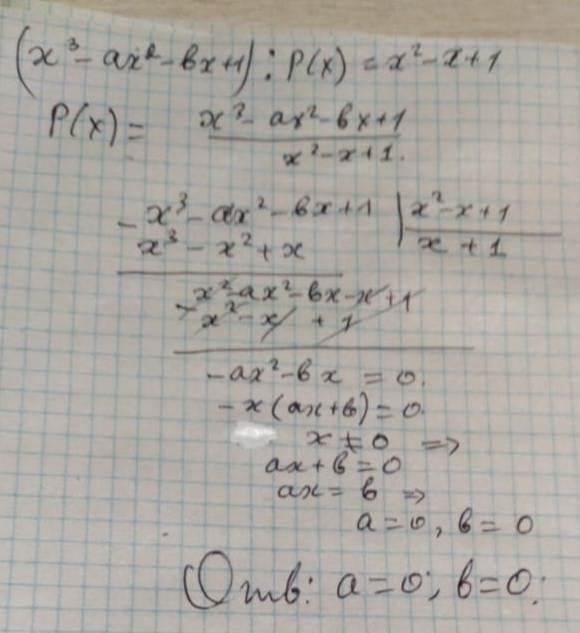 (x³ - ax² - bx+1) : P(x) = x² - x + 1
P(x) = x³ - ax² - bx + 1
x² - x + 1.
- x³ - ax² - bx + 1 | x² - x + 1
x³ - x² + x | x + 1
x² - ax² - bx - x + 1
- x² - x + 1
- ax² - bx = 0.
- x(ax + b) = 0.
x ≠ 0 =>
ax + b = 0
ax = b =>
a = 0, b = 0
Отв: a = 0; b = 0.